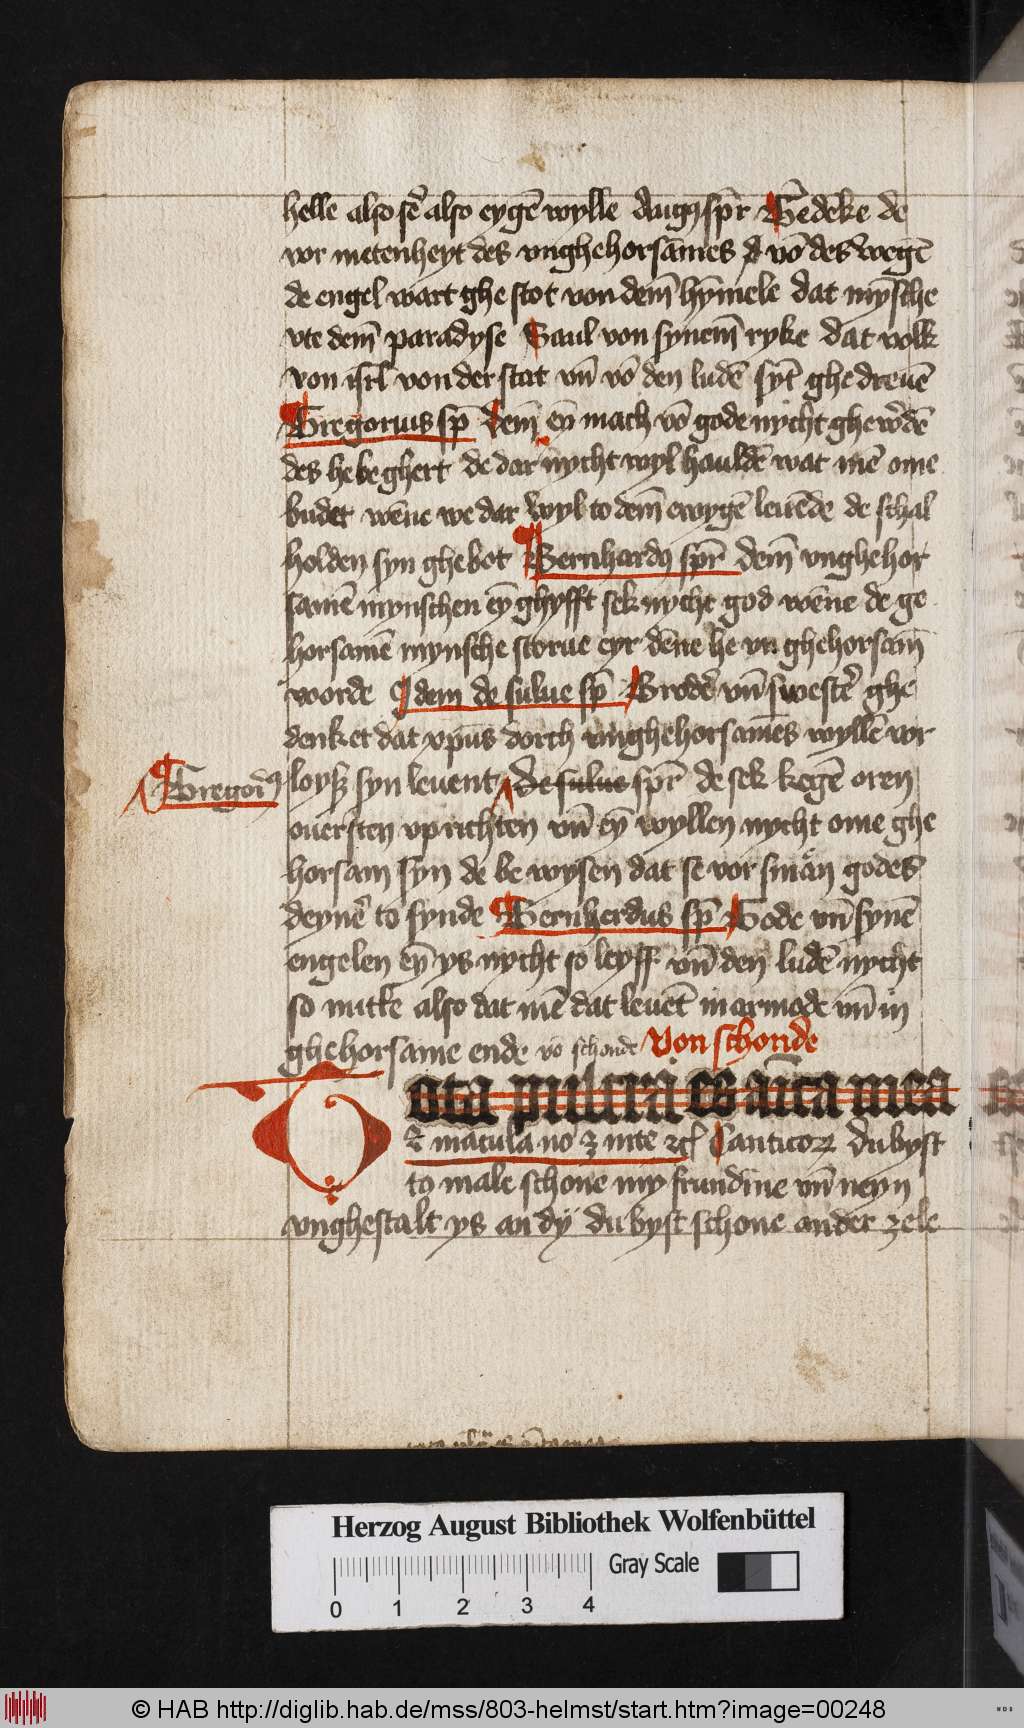 helle also sē also eygē wylle Augꝰ spr̄ Gedēke de
vor metenheyt des vnghehorsāmes vō des wegē
de engel wart ghe stot von dem̄ hȳmele dat mȳsche
vte dem̄ paradyse Saul von synem̄ ryke dat volk
von isrl̄ von der stat vn̄ vō den ludē syt̄ ghe dreuē
Gregorius sp̄ Dem̄ en̄ mach vō gode nycht ghew̄dē
des he be ghert de dar nycht wyl hauldē wat mē ome
budet wēne we dar wyl to dem̄ ewygē leuēde de schal
holden syn ghebot Bernhardꝰ spr̄ dem̄ vnghehor
samē mynschen en̄ ghyfft sek nycht god wēne de ge
horsamē mynsche storue eyr dēne he vn ghehorsam̄
worde Idem de sulue sp̄ Brodē vn̄ swestē ghe
denket dat vpūs dorch vnghehorsāmes wyllē vor
Gregorꝰ loysz syn leuent de sulue spr̄ de sek kegē oren
ouersten vprichten vn̄ en̄ wyllen nycht ome ghe
horsam syn de be wysen dat se vor sman godes
deynē to synde Bernherdus sp̄ Gode vn̄ synē
engelen en̄ ys nycht so leyff vn̄ den ludē nycht
so nutte also dat mē dat leuēt in armode vn̄ in
ghehorsame ende vō schonde Von schonde
Tota pulcra es am̄ca mea
et macula nō ʒ in te ⁊c̄ Canticoꝝ du byst
to male schone my frundīne vn̄ neyn
vnghestalt ys an dÿ du byst schone an der zele
Herzog August Bibliothek Wolfenbüttel
Gray Scale
0 1 2 3 4
© HAB http://diglib.hab.de/mss/803-helmst/start.htm?image=00248